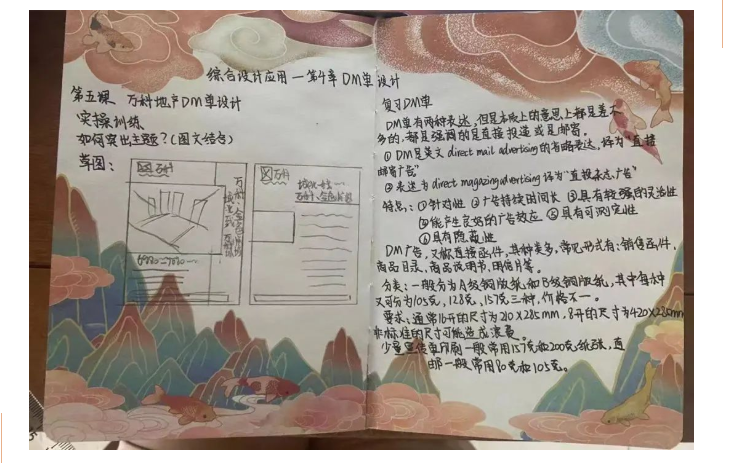 综合设计应用—第4章DM单设计
第五课 万科地产DM单设计
实操训练
如何突出主题?(图文结合)
草图:
万科
万科
复习DM单
DM单有两种表达,但是本版上的意思上都是差不
多的,都是强调的是直接投递或是邮寄。
①DM是英文direct mail advertising的省略表达,译为"直接
邮寄广告"
②表达为direct magazing advertising译为"直投杂志广告"
特点:①针对性 ②广告持续时间长 ③具有较强的灵活性
④能产生良好的广告效应 ⑤具有可测定性
⑥具有隐蔽性
DM广告,又称直接函件,其种类多,常见形式有:销售函件,
商品目录、商品说明书、明信片等。
分类:一般分为A级铜版纸和B级铜版纸,其中每种
又可分为105克,128克,157克三种,价格不一。
要求:通常16开的尺寸为210X285mm,8开的尺寸为420X285mm
非标准的尺寸可能造成浪费。
少量宣传单印刷一般常用157克和200克纸张,直
邮一般常用80克和105克。